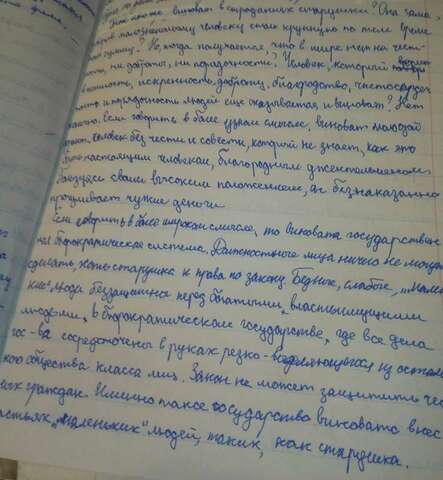 Кто же виноват в страданиях старушки? Она сама,
человеку столь крупную по тем време
сумму? Но, когда получается, что в мире нет ни чест-
ности, ни доброты, ни порядочности? Человек, который
искренность, доброту, благородство, чистосердеч
и порядочность людей ещё оказывается и виноват? Нет
Если говорить в более узком смысле, виноват молодой
человек без чести и совести, который не знает, как это
быть настоящим человеком, благородным джентельменом.
своим высоким положением, он безнаказанно
чужие деньги.
Если говорить в более широком смысле, то виновата государствен
ная бюрократическая система. Должностные лица ничего не могли
сделать, хоть старушка и права по закону. Бедные, слабые, „мален
кие" люди беззащитны перед богатыми, властьимущими
людьми, в бюрократическом государстве, где все дела
гос-ва сосредоточены в руках резко-выделяющегося из осталь
общества класса лиц. Закон не может защитить чес
граждан. Именно такое государство виновато в нес
частьях „маленьких" людей, таких, как старушка.